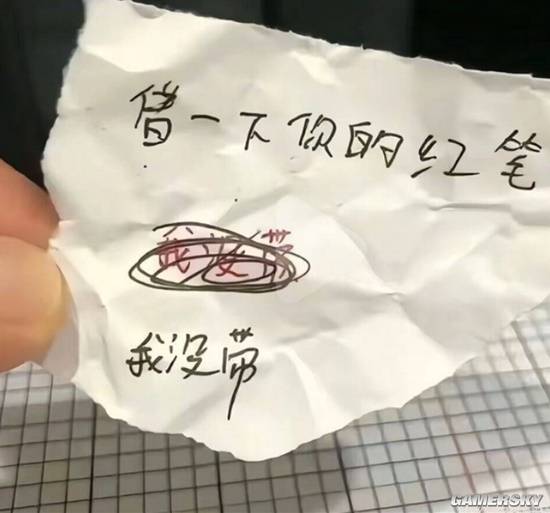 借一下你的红笔
我没带
我没带
GAMERSKY